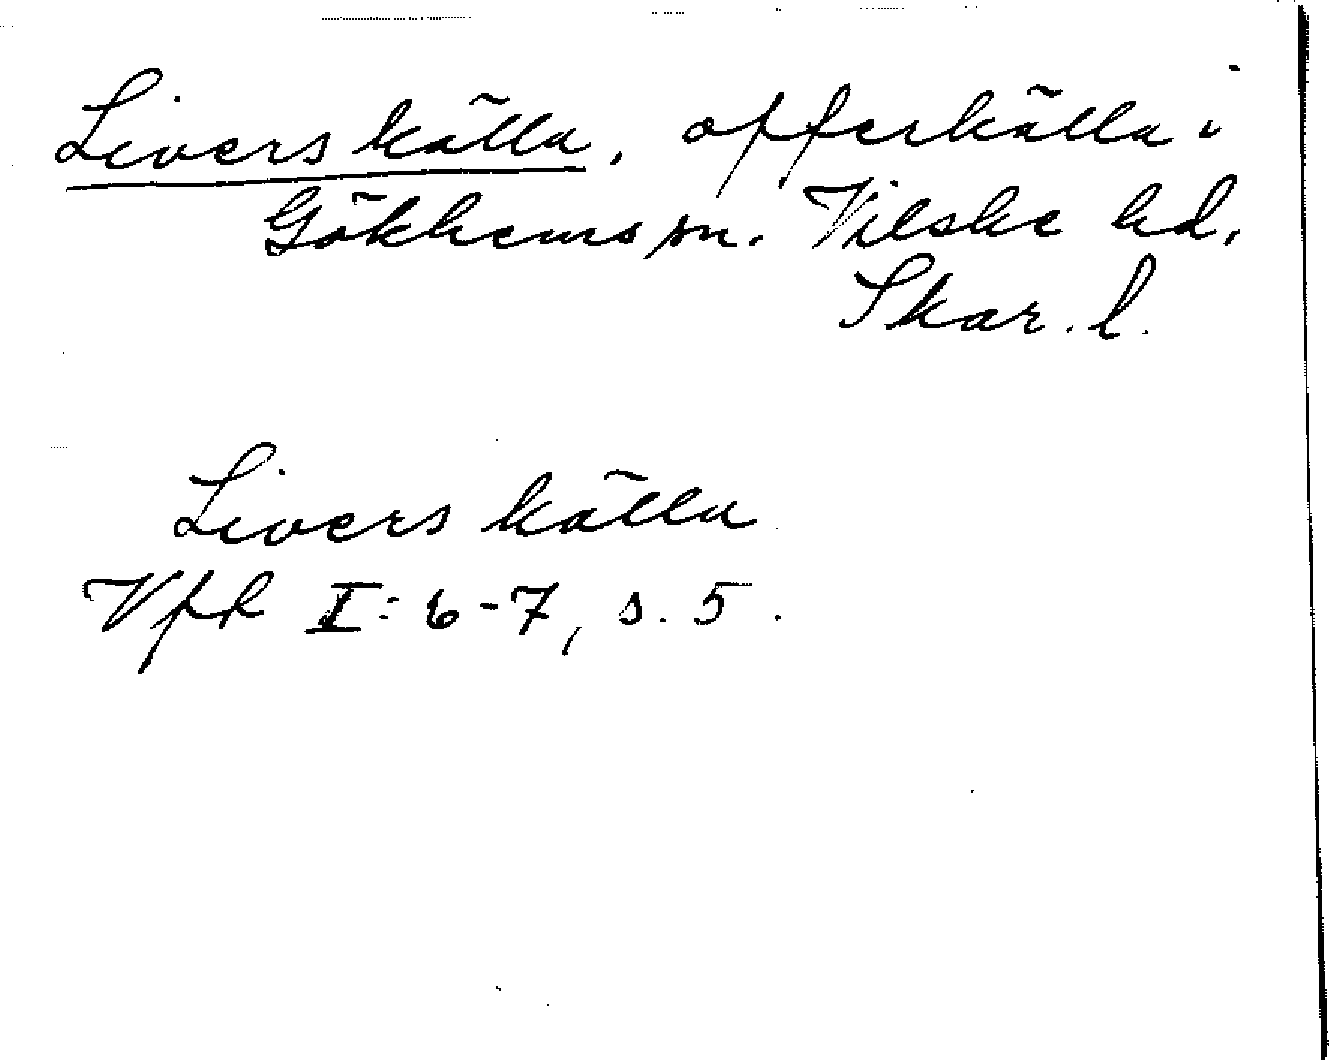 Livers källa, offerkälla i
Gökhems sn. Vilske hd,
Skar. l.
Livers källa
I: 6-7, s. 5.